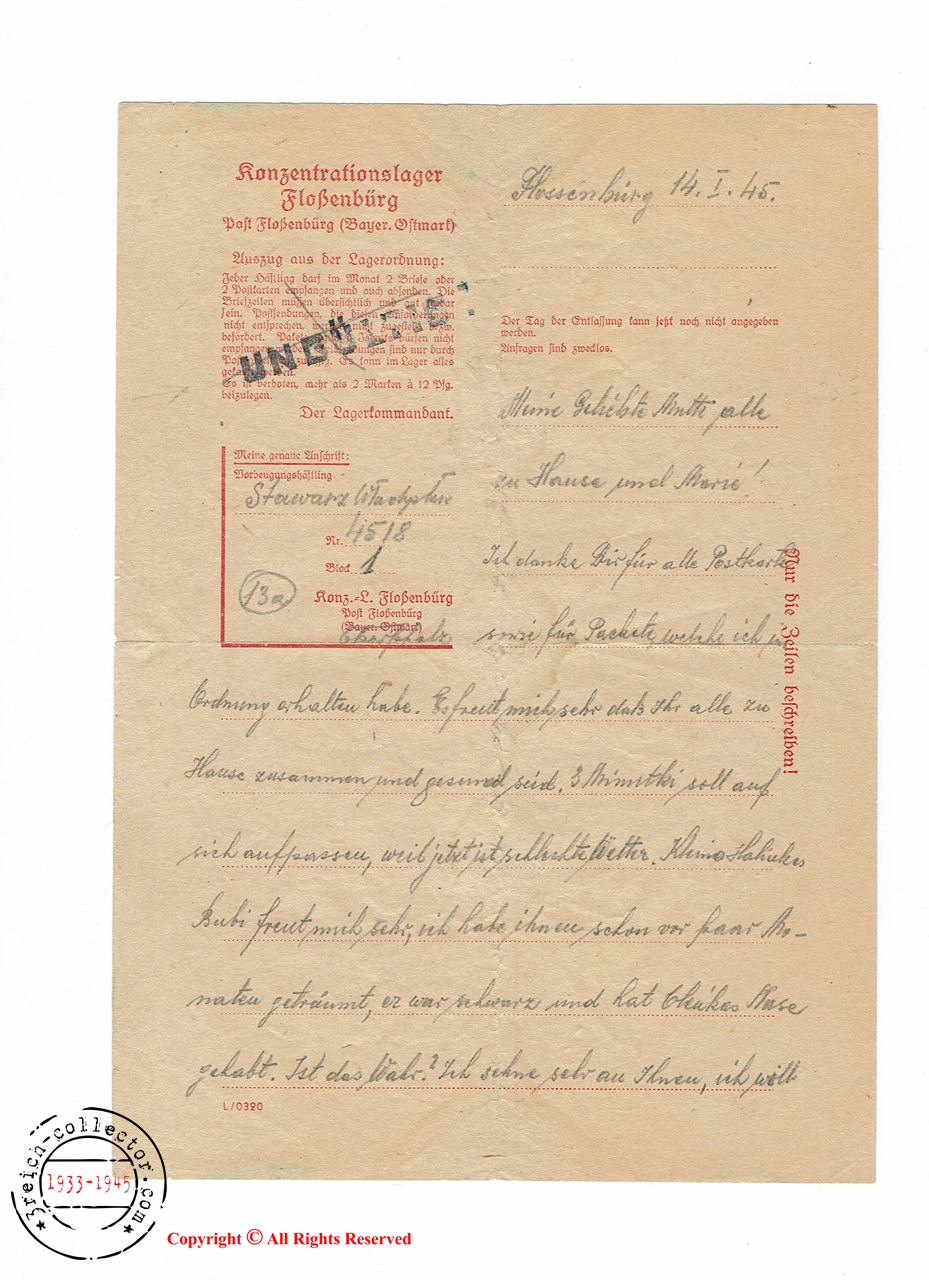 Konzentrationslager
Floßenbürg
Post Floßenbürg (Bayer. Ostmark)
Auszug aus der Lagerordnung:
Jeder Häftling darf im Monat 2 Briefe oder
2 Postkarten empfangen und auch absenden. Die
Briefzeilen müssen übersichtlich und gut lesbar
sein. Postsendungen, die diesen Anforderungen
nicht entsprechen, werden nicht zugestellt bezw.
befördert. Pakete dürfen nicht
empfangen werden. sind nur durch
Es kann im Lager alles
gekauft werden.
Es ist verboten, mehr als 2 Marken à 12 Pfg.
beizulegen.
Der Lagerkommandant.
UNGÜLTIG!
Meine genaue Anschrift:
Vorbeugungshäftling
Stawarz
Nr. 4518
Block 1
13a
Konz.-L. Floßenbürg
Post Floßenbürg
(Bayer. Ostmark)
Oberpfalz
Flossenbürg 14.I.45.
Der Tag der Entlassung kann jetzt noch nicht angegeben
werden.
Anfragen sind zwecklos.
Meine Geliebte Mutti alle
zu Hause und Marie!
Ich danke Dir für alle Postkarte
sowie für Packete, welche ich in
Ordnung erhalten habe. Es freut mich sehr daß Ihr alle zu
Hause zusammen und gesund seid. 3 soll auf
sich aufpassen, weil jetzt ist schlechte Wetter. Kleine
Bubi freut mich sehr, ich habe ihnen schon vor paar Mo-
naten geträumt, er war schwarz und hat Nase
gehabt. Ist das Wahr? Ich sehne sehr an Ihnen, ich will
Nur die Zeilen beschreiben!
L/0320
3reich-collector.com
1933-1945
Copyright © All Rights Reserved